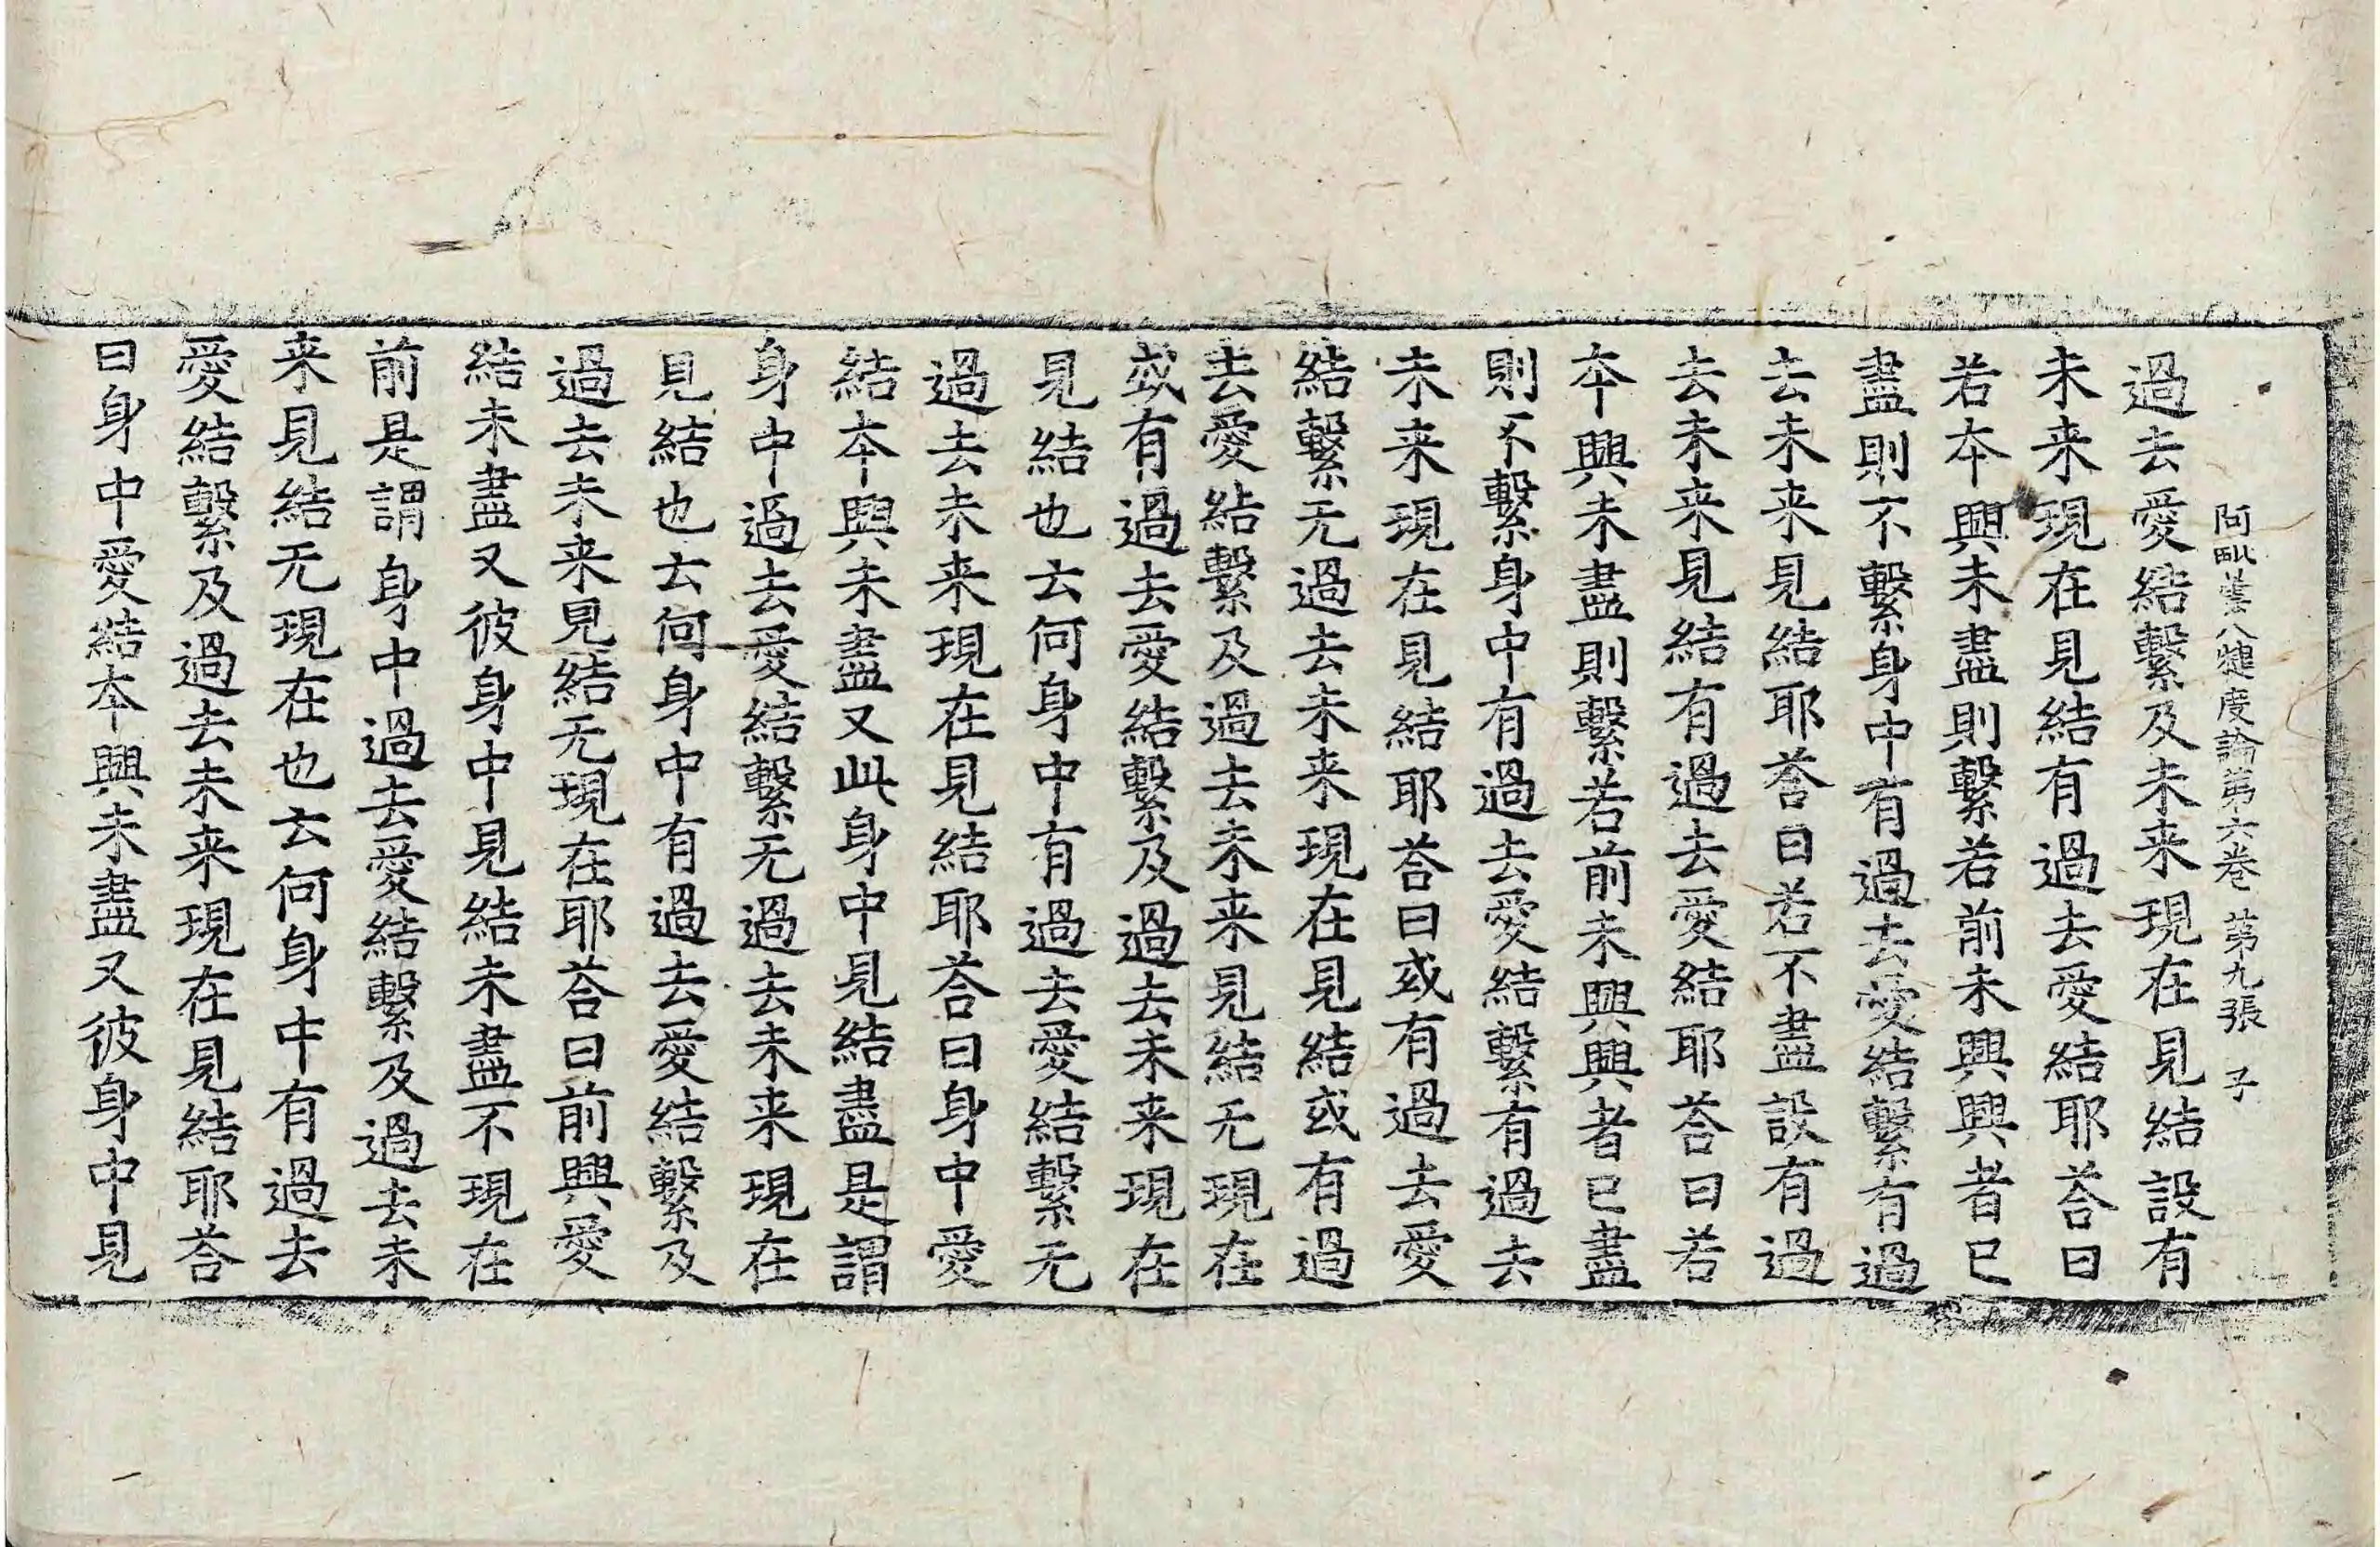 阿毗曇八犍度論第六卷 第九張 子
過去愛結繫及未来現在見結設有
未来現在見結有過去愛結耶荅曰
若本興未盡則繫若前未興興者已
盡則不繫身中有過去愛結繫有過
去未来見結耶荅曰若不盡設有過
去未来見結有過去愛結耶荅曰若
本興未盡則繫若前未興興者已盡
則不繫身中有過去愛結繫有過去
未来現在見結耶荅曰或有過去愛
結繫无過去未来現在見結或有過
去愛結繫及過去未来見結无現在
或有過去愛結繫及過去未来現在
見結也云何身中有過去愛結繫无
過去未来現在見結耶荅曰身中愛
結本興未盡又此身中見結盡是謂
身中過去愛結繫无過去未来現在
見結也云何身中有過去愛結繫及
過去未来見結无現在耶荅曰前興愛
結未盡又彼身中見結未盡不現在
前是謂身中過去愛結繫及過去未
来見結无現在也云何身中有過去
愛結繫及過去未来現在見結耶荅
曰身中愛結本興未盡又彼身中見